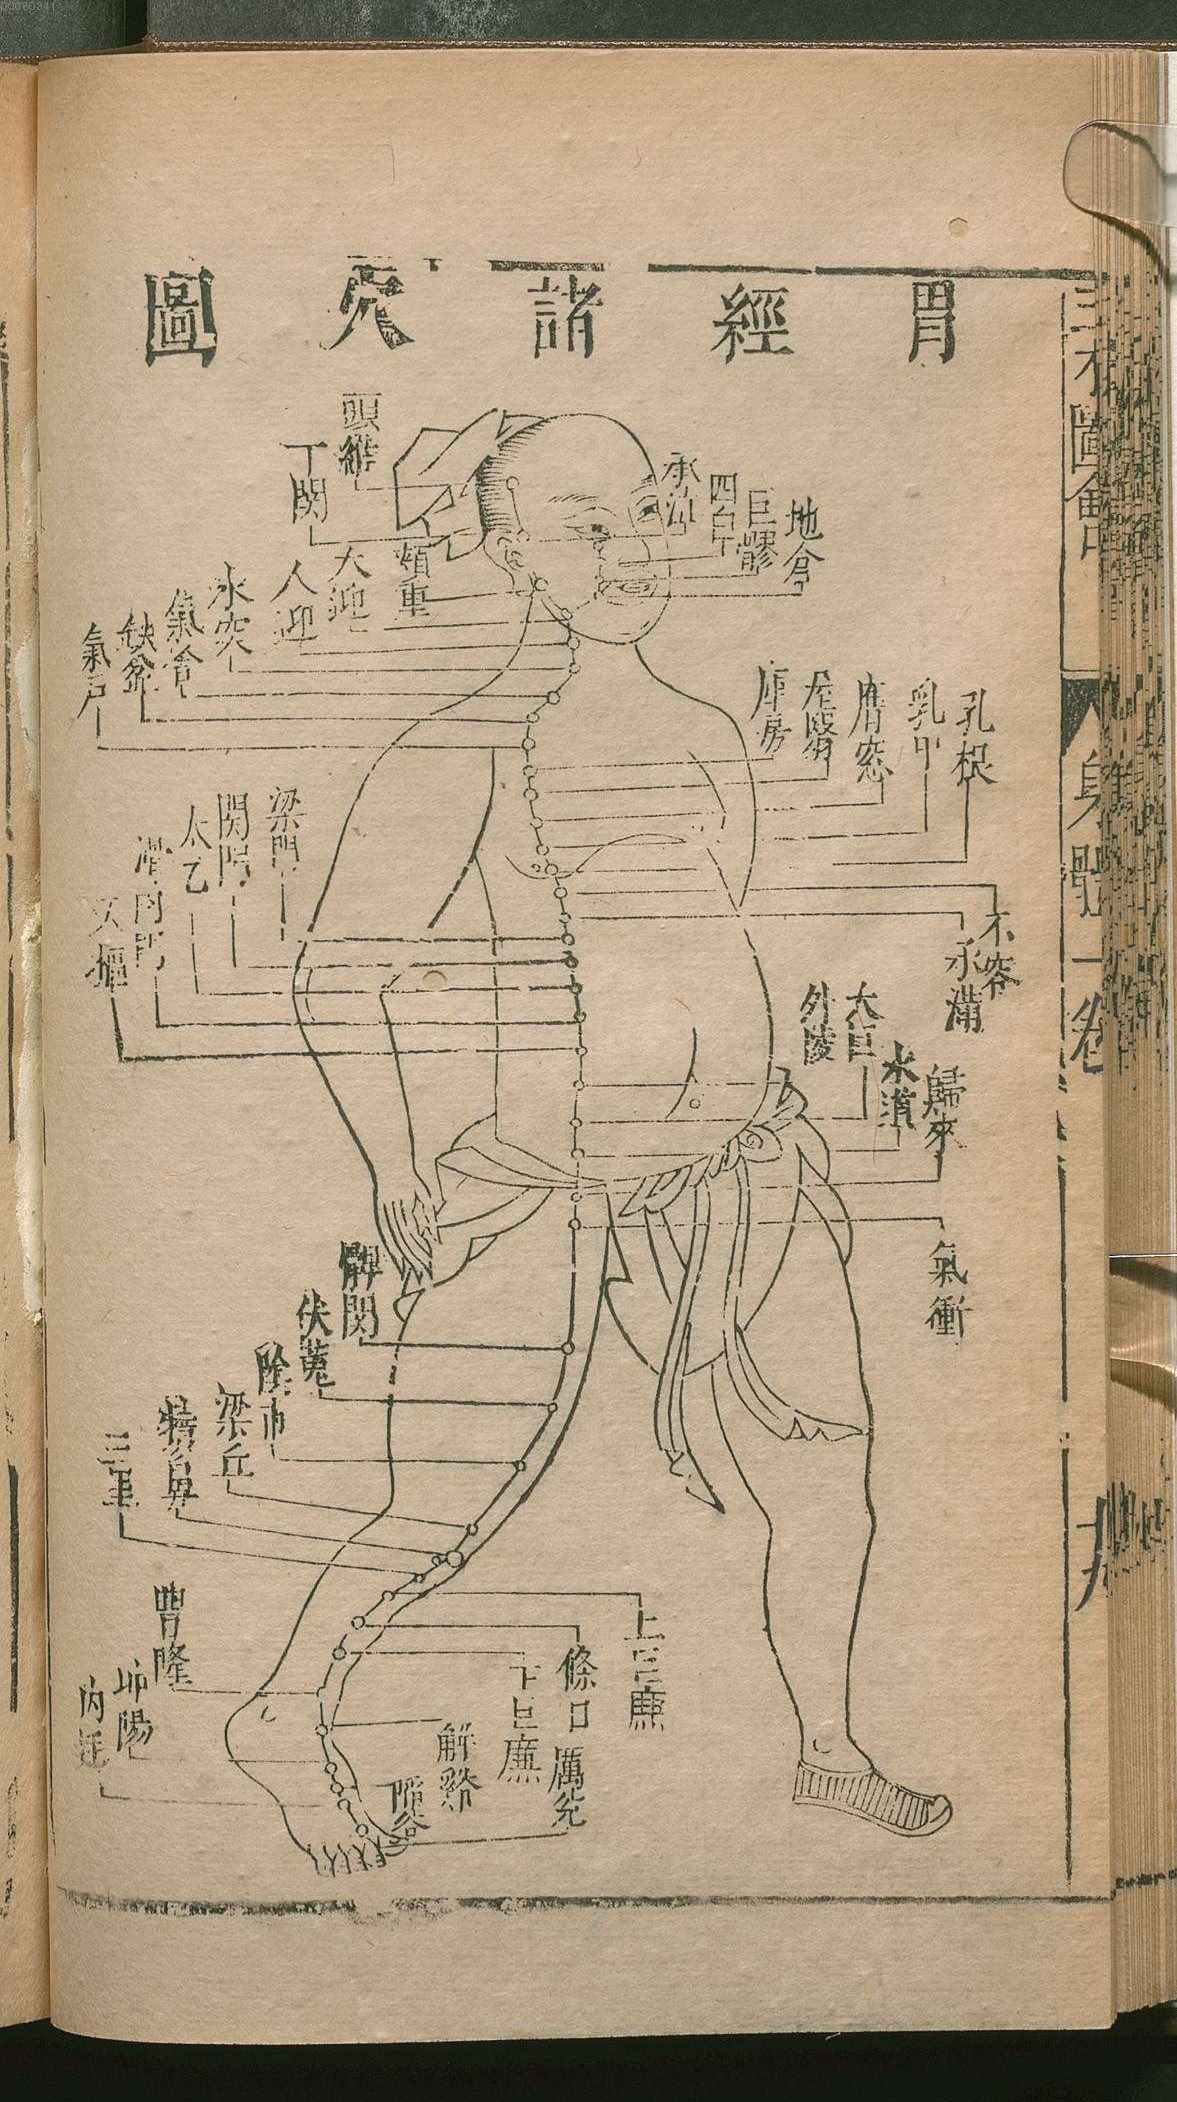 胃經諸穴圖
頭維
下関
頰車
大迎
人迎
水突
氣舍
缺盆
氣户
承泣
四白
巨髎
地倉
庫房
屋翳
膺窓
乳中
乳根
梁門
関門
太乙
滑肉門
天樞
不容
承滿
外陵
大巨
水道
歸來
氣衝
髀関
伏菟
陰市
梁丘
犢鼻
三里
上巨廉
條口
下巨廉
豐隆
解谿
卭陽
陷谷
内廷
厲兊
三才圖會
身體一卷
九
00060341